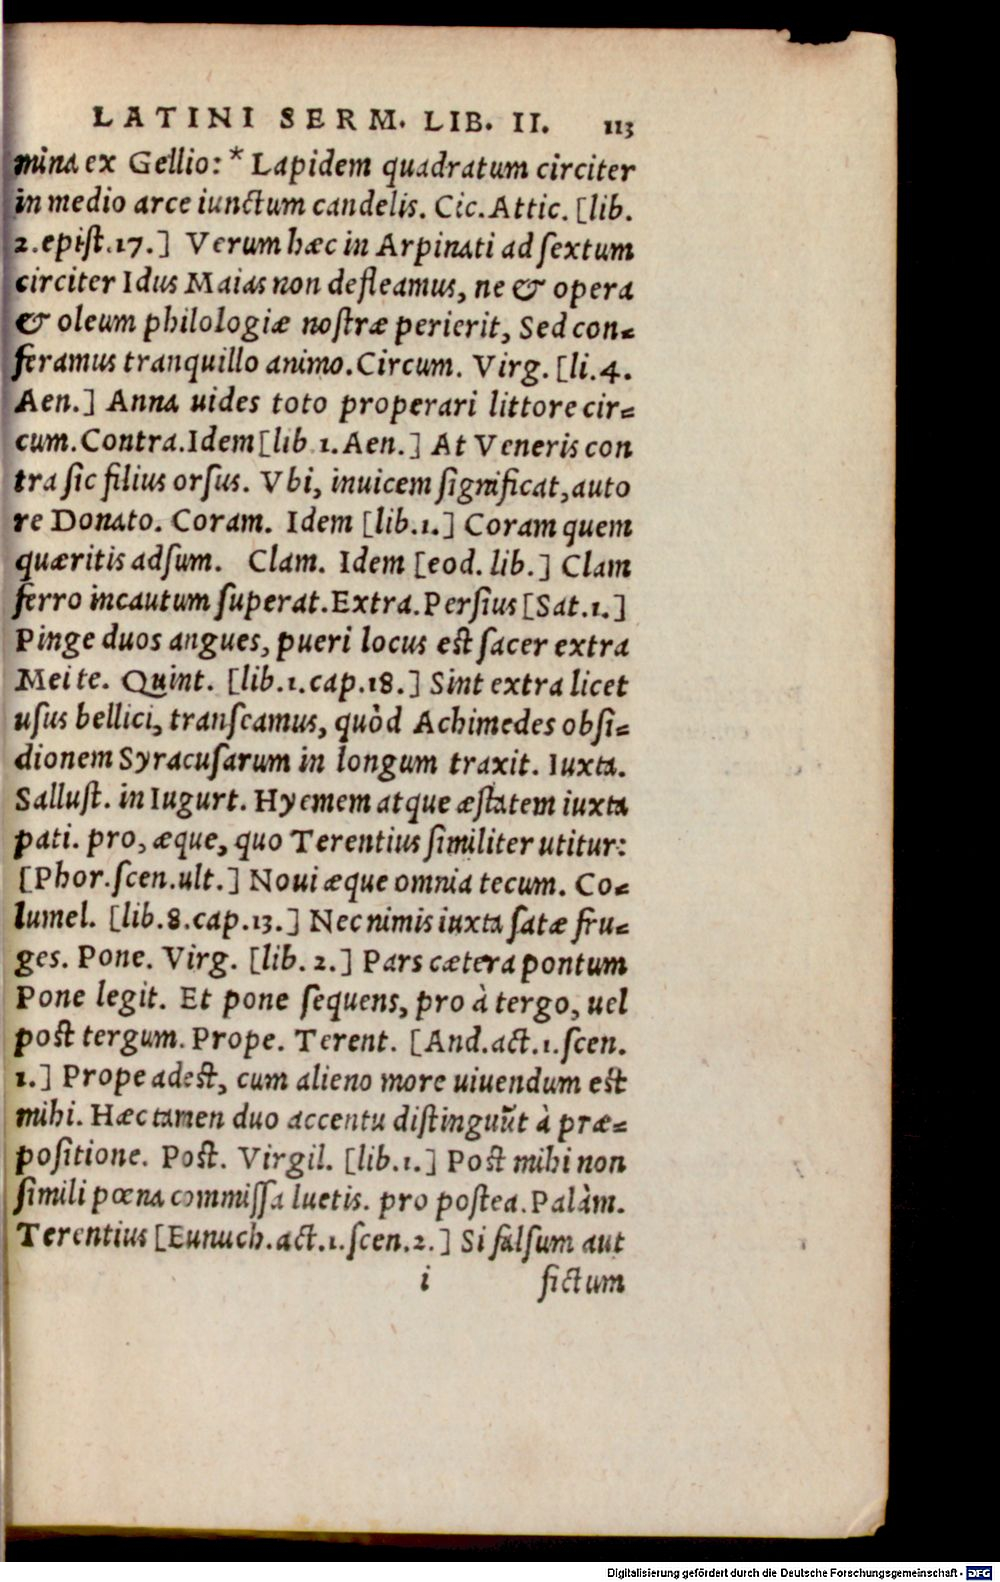 LATINI SERM. LIB. II. 113
mina ex Gellio: * Lapidem quadratum circiter
in medio arce iunctum candelis. Cic. Attic. [lib.
2. epiſt. 17.] Verum hæc in Arpinati ad ſextum
circiter Idus Maias non defleamus, ne & opera
& oleum philologiæ noſtræ perierit, Sed con-
feramus tranquillo animo. Circum. Virg. [li. 4.
Aen.] Anna uides toto properari littore cir-
cum. Contra. Idem [lib 1. Aen.] At Veneris con
tra ſic filius orſus. Vbi, inuicem ſignificat, auto
re Donato. Coram. Idem [lib. 1.] Coram quem
quæritis adſum. Clam. Idem [eod. lib.] Clam
ferro incautum ſuperat. Extra. Perſius [Sat. 1.]
Pinge duos angues, pueri locus eſt ſacer extra
Mei te. Quint. [lib. 1. cap. 18.] Sint extra licet
uſus bellici, tranſeamus, quòd Achimedes obſi-
dionem Syracuſarum in longum traxit. Iuxta.
Salluſt. in Iugurt. Hyemem atque æſtatem iuxta
pati. pro, æque, quo Terentius ſimiliter utitur:
[Phor. ſcen. ult.] Noui æque omnia tecum. Co-
lumel. [lib. 8. cap. 13.] Nec nimis iuxta ſatæ fru-
ges. Pone. Virg. [lib. 2.] Pars cætera pontum
Pone legit. Et pone ſequens, pro à tergo, uel
poſt tergum. Prope. Terent. [And. act. 1. ſcen.
1.] Prope adeſt, cum alieno more uiuendum eſt
mihi. Hæc tamen duo accentu diſtinguũt à præ-
poſitione. Poſt. Virgil. [lib. 1.] Poſt mihi non
ſimili pœna commiſſa luetis. pro poſtea. Palàm.
Terentius [Eunuch. act. 1. ſcen. 2.] Si falſum aut
i fictum
Digitalisierung gefördert durch die Deutsche Forschungsgemeinschaft - DFG